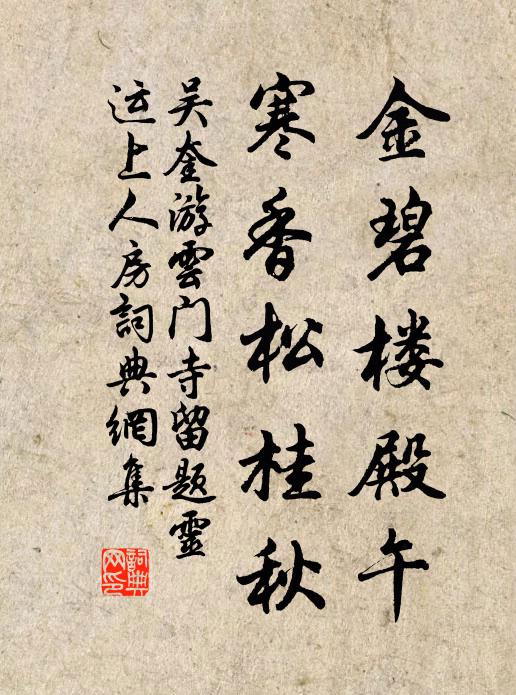 金碧楼殿午
寒香松桂秋
吴奎游雲门寺留題靈
运上人房詞典網集
詞典
网印